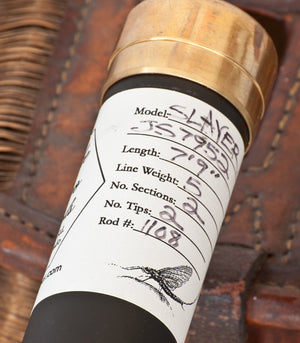 Model: SLAYER
JS7952
Length: 7'9"
Line Weight: 5
No. Sections: 2
No. Tips: 2
Rod #: 1108
.com